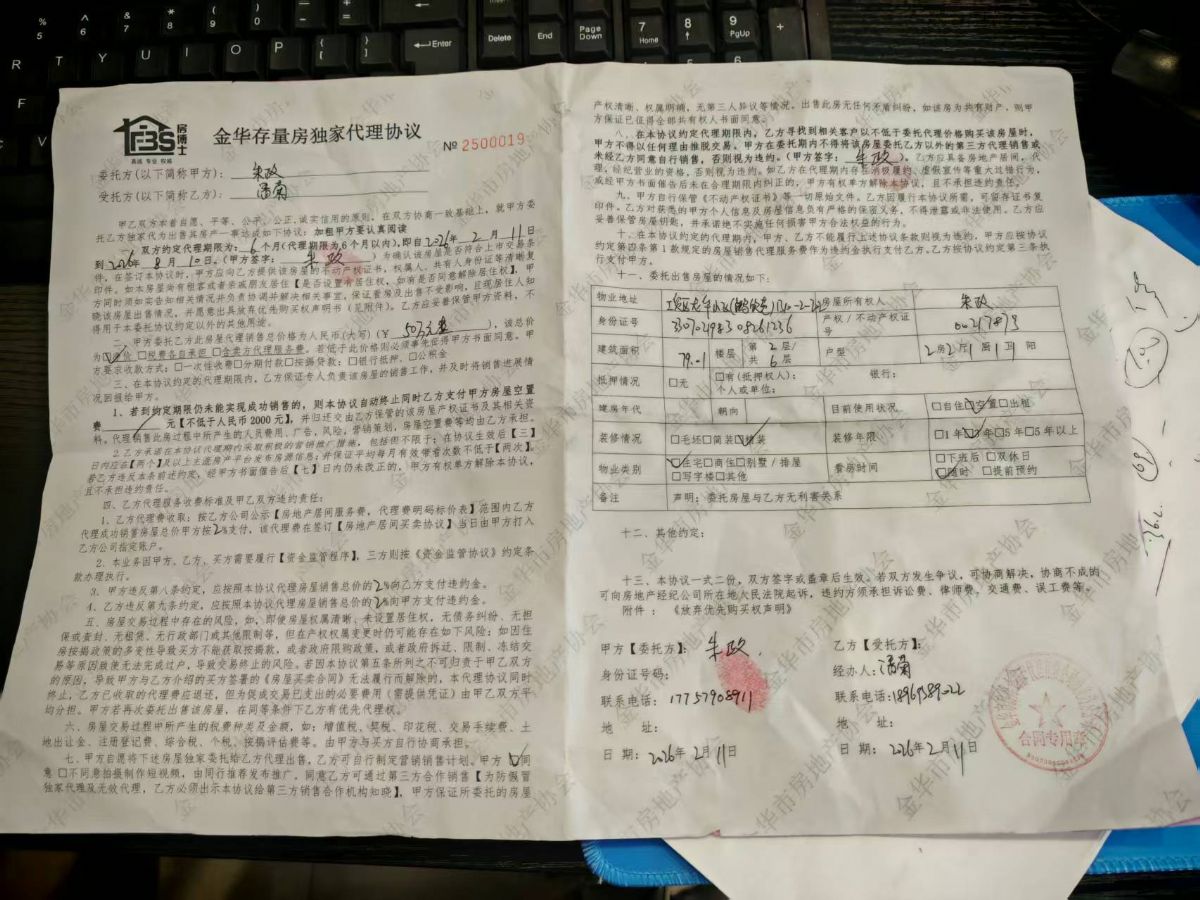 FBS 房博士
真诚 专业 权威
金华存量房独家代理协议
№ 2500019
委托方(以下简称甲方): 朱政
受托方(以下简称乙方): 潘菊
甲乙双方本着自愿、平等、公平、公正,诚实信用的原则,在双方协商一致基础上,就甲方委
托乙方独家代为出售其房产一事达成如下协议:加粗甲方要认真阅读
一、双方约定代理期限为: 6 个月(代理期限为6个月以内),即自2026年 2 月 11日
到 2026年 8 月 10日。(甲方签字: 朱政 )为确认该房屋是否符合上市交易条
件,在签订本协议时,甲方应向乙方提供该房屋的不动产权证书,权属人、共有人身份证等清晰复
印件。如本房屋向有租客或者亲戚朋友居住【是否设置有居住权,如有是否同意解除居住权】,甲
方同时须如实告知相关情况并负责协调并解决相关事宜,保证看房及出售不受影响,且现居住人知
晓该房屋出售情况,并愿意出具放弃优先购买权声明书(见附件)。乙方应妥善保管甲方资料,不
得用于本委托协议约定以外的其他用途。
二、甲方委托乙方此房屋代理销售总价格为人民币(大写)(¥ ),该总价
为 价 □税费各自承担 □含卖方代理服务费。若低于此价格则必须事先征得甲方书面同意。甲
方要求收款方式:□一次性收费□分期付款□按揭贷款:□银行抵押、□公积金
三、在本协议约定的代理期限内,乙方保证专人负责该房屋的销售工作,并及时将销售进展情
况回报给甲方。
1、若到约定期限仍未能实现成功销售的,则本协议自动终止同时乙方支付甲方房屋空置
费 元【不低于人民币2000元】,并归还交由乙方保管的该房屋产权证书及其相关资
料。代理销售此房过程中所产生的人员费用、广告、风险,营销策划,房屋空置费等均由乙方承担。
2.乙方承诺在本协议代理期内采取积极的营销推广措施,包括但不限于:在协议生效后【三】
日内应在【两个】及以上主流房产平台发布房源信息;并保证平均每月有效带看次数不低于【两次】。
若乙方违反本条前述约定,经甲方书面催告后【七】日内仍未改正的,甲方有权单方解除本协议,
且不承担违约责任。
四、乙方代理服务收费标准及甲乙双方违约责任:
1、乙方代理费收取:按乙方公司公示【房地产居间服务费,代理费明码标价表】范围内乙方
代理成功销售房屋总价甲方按2%支付,该代理费在签订【房地产居间买卖协议】当日由甲方打入
乙方公司指定账户。
2、本业务因甲方、乙方、买方需要履行【资金监管程序】,三方则按《资金监管协议》约定条
款办理执行。
3、甲方违反第八条约定,应按照本协议代理房屋销售总价的2%向乙方支付违约金。
4、乙方违反第九条约定,应按照本协议代理房屋销售总价的2%向甲方支付违约金。
五、房屋交易过程中存在的风险,如:即使房屋权属清晰、未设置居住权,无债务纠纷、无担
保或查封、无租赁、无行政部门或其他限制等,但在产权权属变更时仍可能存在如下风险:如因住
房按揭政策的多变性导致买方不能获取按揭款,或者政府限购政策,或者政府拆迁、限制、冻结交
易等原因致使无法完成过户,导致交易终止的风险。若因本协议第五条所列之不可归责于甲乙双方
的原因,导致甲方与乙方介绍的买方签署的《房屋买卖合同》无法履行而解除的,本代理协议同时
终止,乙方已收取的代理费应退还,但为促成交易已支出的必要费用(需提供凭证)由甲乙双方平
均分担。甲方若再次委托出售该房屋,在同等条件下乙方有优先代理权。
六、房屋交易过程中所产生的税费种类及金额,如:增值税、契税、印花税、交易手续费、土
地出让金、注册登记费、综合税、个税、按揭评估费等。由甲方与买方自行协商承担。
七、甲方自愿将下述房屋独家委托给乙方代理出售,乙方可自行制定营销销售计划。甲方 □同
意 □不同意拍摄制作短视频,由同行推荐发布推广,同意乙方可通过第三方合作销售【为防假冒
独家代理及无效代理,乙方必须出示本协议给第三方销售合作机构知晓】,甲方保证所委托的房屋
产权清晰、权属明确,无第三人异议等情况。出售此房无任何矛盾纠纷,如该房为共有财产,则甲
方保证已征得全部共有权人书面同意。
八、在本协议约定代理期限内,乙方寻找到相关客户以不低于委托代理价格购买该房屋时,
甲方不得以任何理由推脱交易。甲方在委托期内不得将该房屋委托乙方以外的第三方代理销售或
未经乙方同意自行销售,否则视为违约。(甲方签字: 朱政 )。乙方应具备房地产居间,代
理,经纪营业的资格,否则视为违约。如乙方在代理期内存在消极履约、虚假宣传等重大过错行为,
或经甲方书面催告后未在合理期限内纠正的,甲方有权单方解除本协议,且不承担违约责任。
九、甲方自行保管《不动产权证书》等一切原始文件。乙方因履行本协议所需,可留存证书复
印件。乙方对获悉的甲方个人信息及房屋信息负有严格的保密义务,不得泄露或非法使用。乙方应
妥善保管房屋钥匙,并承诺绝不实施任何损害甲方合法权益的行为。
十、在本协议约定的代理期内,甲方、乙方不能履行上述协议条款则视为违约,甲方应按协议
约定第四条第1款规定的房屋销售代理服务费作为违约金执行支付乙方。乙方按协议约定第三条执
行支付甲方。
十一、委托出售房屋的情况如下:
物业地址 房屋所有权人 朱政
身份证号 330702198308261236 产权/不动产权证号 00217819
建筑面积 79.1 楼层 第 2 层/共 6 层 户型 2房2厅1厨1卫 阳
抵押情况 □无 □有(抵押权人): 银行:
个人或单位:
建房年代 朝向 目前使用状况 □自住□空置□出租
装修情况 □毛坯□简装□精装 装修年限 □1年□3年□5年□5年以上
物业类别 □住宅□商住□别墅/排屋 □写字楼□其他 看房时间 □下班后 □双休日 □随时 □提前预约
备注 声明:委托房屋与乙方无利害关系
十二、其他约定:
十三、本协议一式二份,双方签字或盖章后生效。若双方发生争议,可协商解决,协商不成的
可向房地产经纪公司所在地人民法院起诉,违约方须承担诉讼费、律师费,交通费、误工费等。
附件:《放弃优先购买权声明》
甲方【委托方】: 朱政
身份证号码:
联系电话: 17757908911
地 址:
日 期: 2026年 2 月 11日
乙方【受托方】:
经办人: 潘菊
联系电话: 18969589022
地 址:
日 期: 2026年 2 月 11日
合同专用章
金华市房地产协会